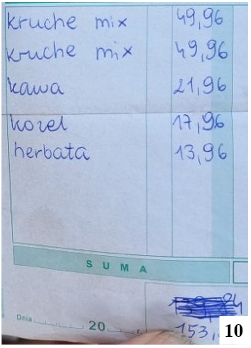 kruche mix 49,96
kruche mix 49,96
kawa 21,96
kozel 17,96
herbata 13,96
SUMA
Dnia 20 r. 153,
10